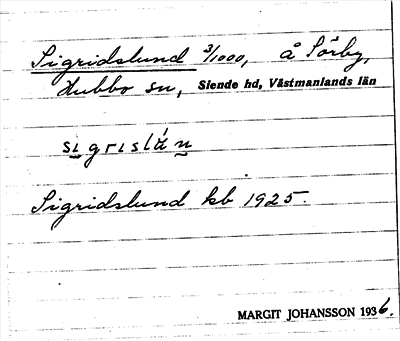 Sigridslund 3/1000, å Sörby,
Hubbo sn, Siende hd, Västmanlands län
Sigridslund kb 1925.
MARGIT JOHANSSON 1936.